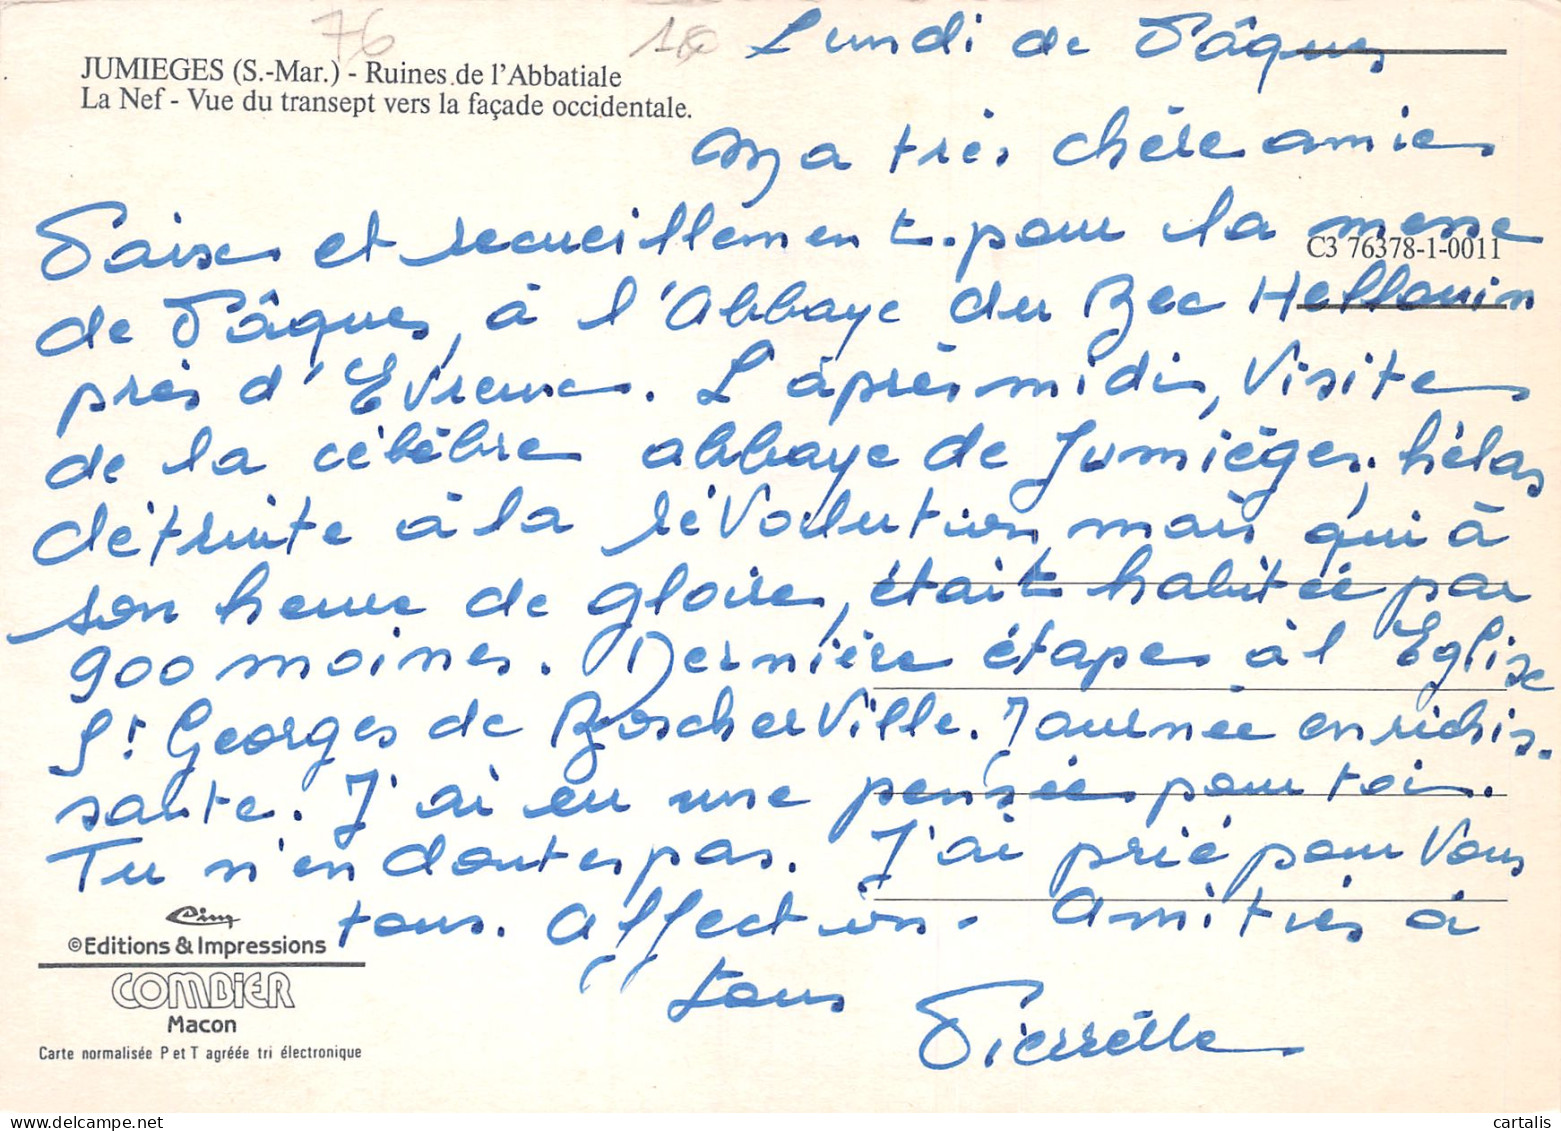 76
10
Lundi de Pâques
JUMIEGES (S.-Mar.) - Ruines de l'Abbatiale
La Nef - Vue du transept vers la façade occidentale.
Ma très chère amie
Paix et recueillement pour la messe
C3 76378-1-0011
de Pâques, à l'Abbaye du Bec Hellouin
près d'Evreux. L'après midi, visite
de la célèbre abbaye de Jumièges, hélas
détruite à la révolution, mais qui à
son heure de gloire, était habitée par
900 moines. Dernière étape à l'Eglise
St Georges de Boscherville. Journée enrichis-
sante. J'ai eu une pensée pour toi.
Tu n'en doutes pas. J'ai prié pour vous
tous. Affection. Amitiés à
tous Pierrette
Cim
© Editions & Impressions
COMBIER
Macon
Carte normalisée P et T agréée tri électronique
cartalis